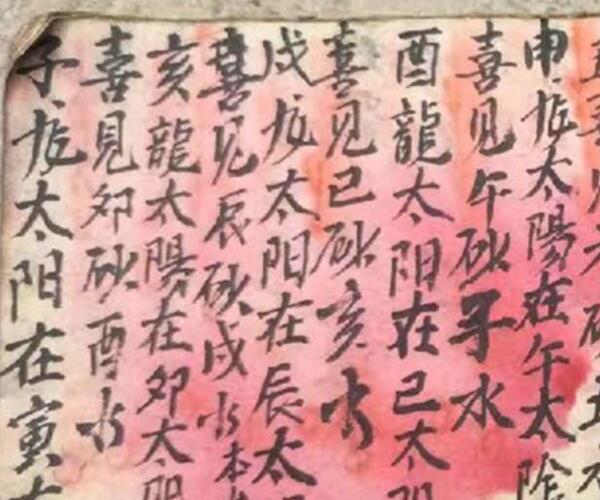 申龙太陽在午太陰
喜见午砂子水
酉龍太阳在巳太阴
喜见巳砂亥水
戌龙太阳在辰太
喜见辰砂戌水本
亥龍太陽在卯太阳
喜見卯砂酉水
子龙太阳在寅太